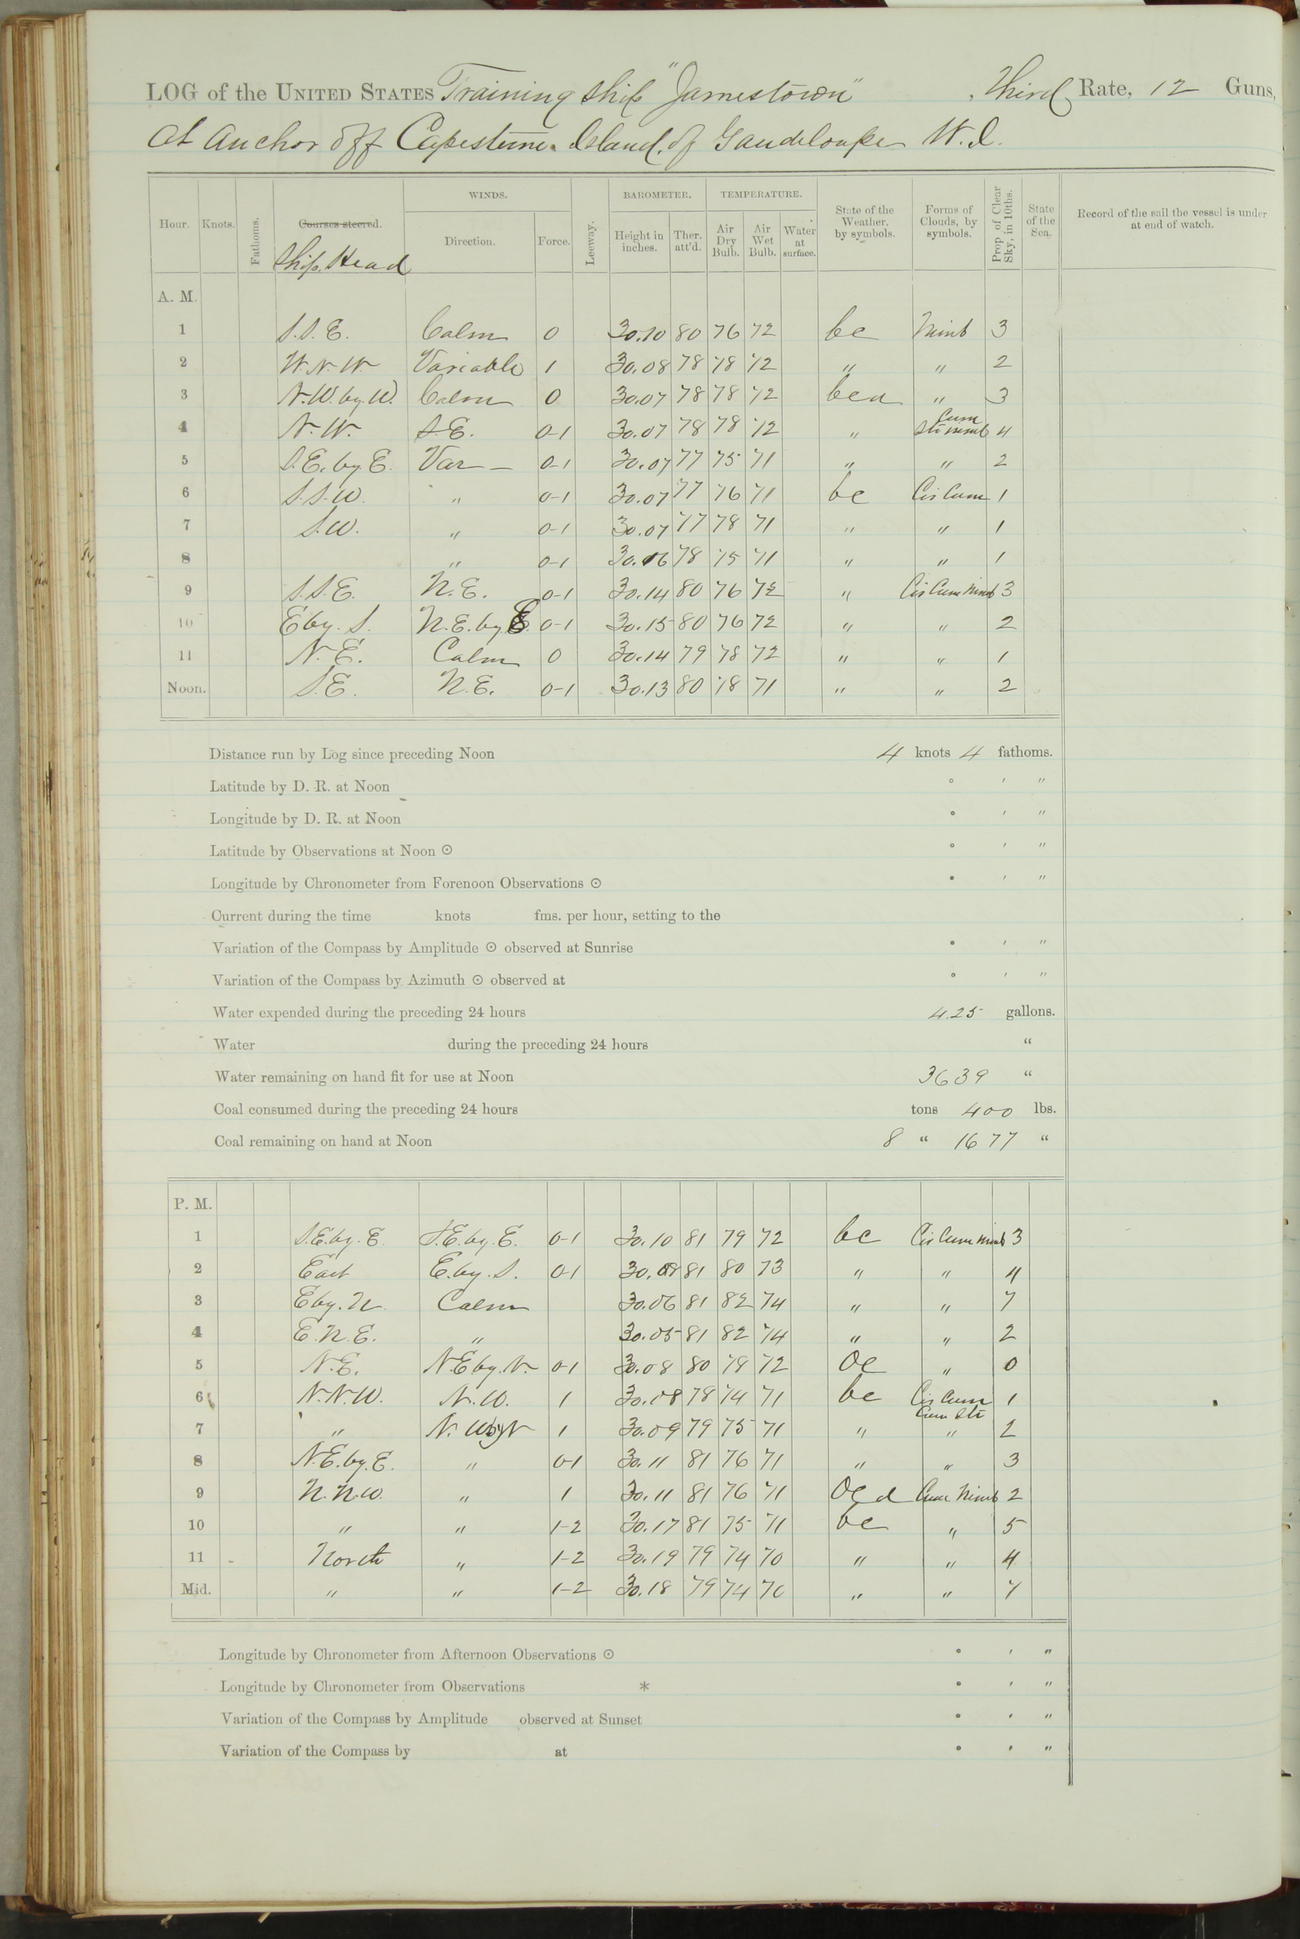 LOG of the UNITED STATES Training Ship "Jamestown", Third Rate, 12 Guns,
At Anchor off Capesterre Island of Gaudeloupe W.I.
Hour. Knots. Fathoms. Courses steered. Ship Head WINDS. Direction. Force. Leeway. BAROMETER. Height in inches. Ther. att'd. TEMPERATURE. Air Dry Bulb. Air Wet Bulb. Water at surface. State of the Weather, by symbols. Forms of Clouds, by symbols. Prop. of Clear Sky, in 10ths. State of the Sea. Record of the sail the vessel is under at end of watch.
A. M.
1 S.S.E. Calm 0 30.10 80 76 72 bc Nimb 3
2 W.N.W. Variable 1 30.08 78 78 72 " " 2
3 N.W. by W. Calm 0 30.07 78 78 72 bcu " 3
4 N.W. S.E. 0-1 30.07 78 78 72 " Cum Str nimb 4
5 S.E. by E. Var — 0-1 30.07 77 75 71 " " 2
6 S.S.W. " 0-1 30.07 77 76 71 bc Cir Cum 1
7 S.W. " 0-1 30.07 77 78 71 " " 1
8 " 0-1 30.06 78 75 71 " " 1
9 S.S.E. N.E. 0-1 30.14 80 76 72 " Cir Cum Nimb 3
10 E by. S. N.E. by E. 0-1 30.15 80 76 72 " " 2
11 N.E. Calm 0 30.14 79 78 72 " " 1
Noon. S.E. N.E. 0-1 30.13 80 78 71 " " 2
Distance run by Log since preceding Noon 4 knots 4 fathoms.
Latitude by D. R. at Noon ° ' "
Longitude by D. R. at Noon ° ' "
Latitude by Observations at Noon ☉ ° ' "
Longitude by Chronometer from Forenoon Observations ☉ ° ' "
Current during the time knots fms. per hour, setting to the
Variation of the Compass by Amplitude ☉ observed at Sunrise ° ' "
Variation of the Compass by Azimuth ☉ observed at ° ' "
Water expended during the preceding 24 hours 425 gallons.
Water during the preceding 24 hours "
Water remaining on hand fit for use at Noon 3639 "
Coal consumed during the preceding 24 hours tons 400 lbs.
Coal remaining on hand at Noon 8 " 1677 "
P. M.
1 S.E. by. E. S.E. by. E. 0-1 30.10 81 79 72 bc Cir Cum Nimb 3
2 East E. by. S. 0-1 30.08 81 80 73 " " 4
3 E by. N. Calm 30.06 81 82 74 " " 7
4 E.N.E. " 30.05 81 82 74 " " 2
5 N.E. N.E by. N. 0-1 30.08 80 78 72 Oc " 0
6 N.N.W. N.W. 1 30.08 78 74 71 bc Cir Cum 1
7 " N. W by N 1 30.09 79 75 71 " Cum Str " 2
8 N.E. by. E. " 0-1 30.11 81 76 71 " " 3
9 N.N.W. " 1 30.11 81 76 71 Oc d Cum Nimb 2
10 " " 1-2 30.17 81 75 71 bc " 5
11 North " 1-2 30.19 79 74 70 " " 4
Mid. " " 1-2 30.18 79 74 70 " " 7
Longitude by Chronometer from Afternoon Observations ☉ ° ' "
Longitude by Chronometer from Observations * ° ' "
Variation of the Compass by Amplitude observed at Sunset ° ' "
Variation of the Compass by at ° ' "